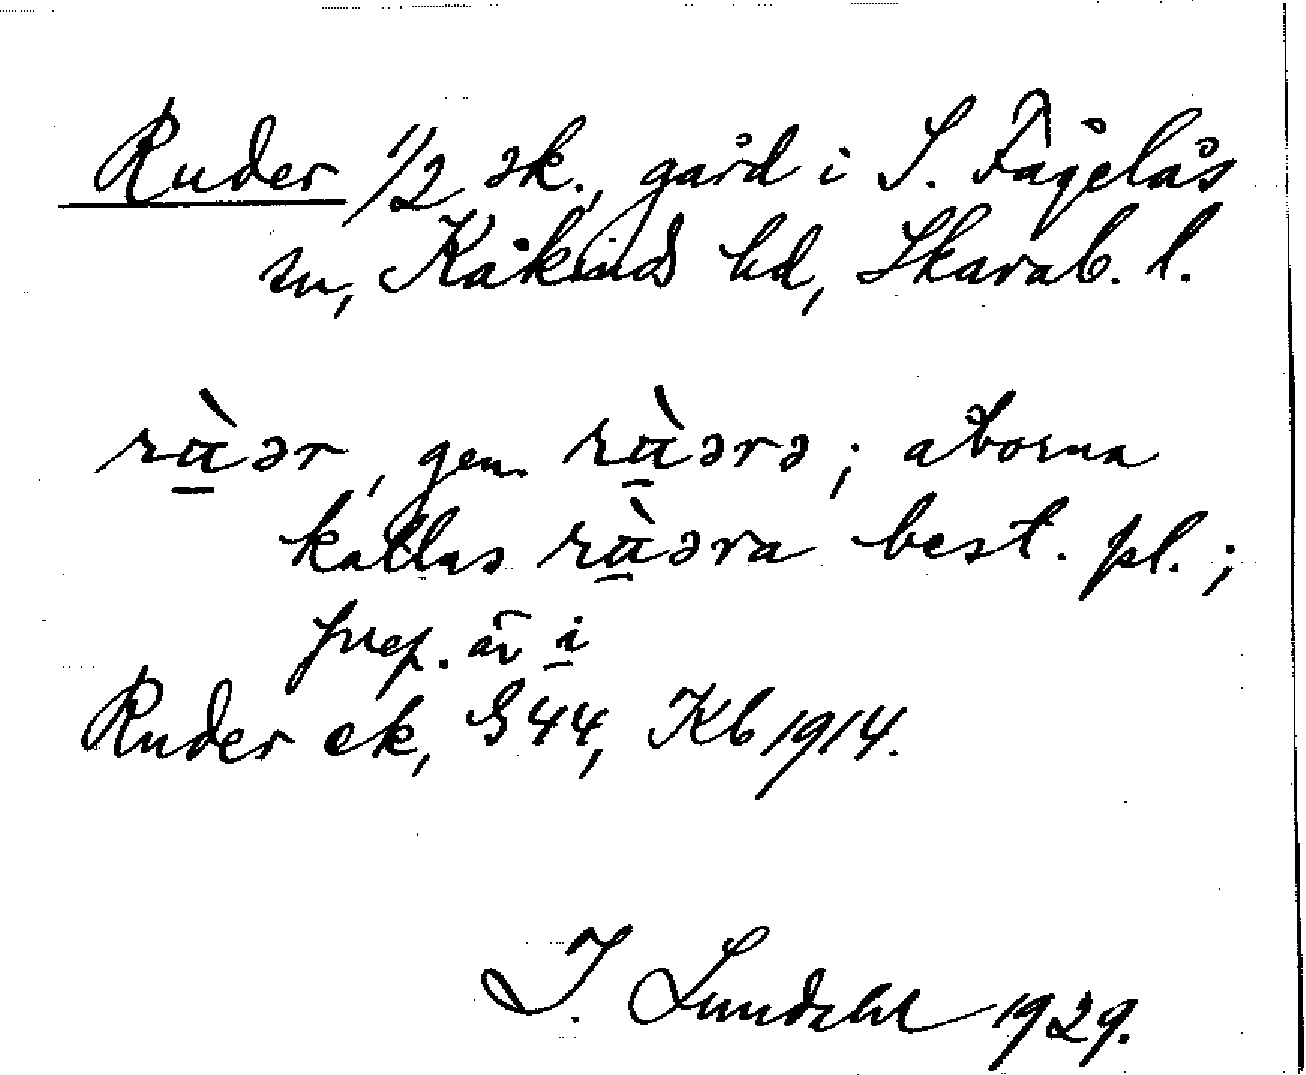 Ruder 1/2 sk., gård i S. Fågelås
sn, Kåkinds hd, Skarab. l.
rὰ̠ər, gen. rὰ̠ərə; åborna
kallas rὰ̠əra best. pl.;
prep. är i
Ruder ek, G 44, Kb 1914.
I. Lundahl 1929.